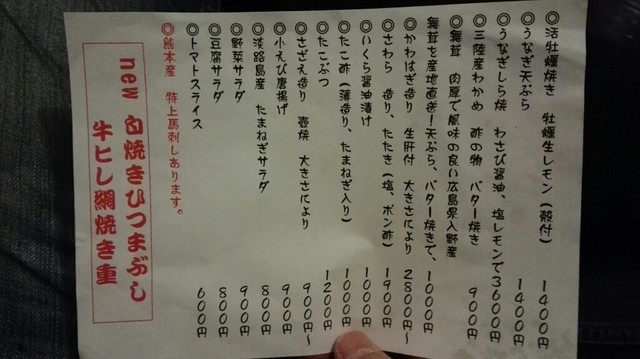 ◎活牡蠣焼き 牡蠣生レモン(殻付) 1400円
◎うなぎ天ぷら 1400円
◎うなぎしら焼 わさび醤油、塩レモンで3600円
◎三陸産わかめ 酢の物 バター焼き 900円
◎舞茸 肉厚で風味の良い広島県入野産
舞茸を産地直送!天ぷら、バター焼きで、1000円
◎かわはぎ造り 生肝付 大きさにより 2800円〜
◎さわら 造り、たたき(塩、ポン酢) 1900円
◎いくら醤油漬け 1000円
◎たこ酢(薄造り、たまねぎ入り) 1000円
◎たこぶつ 1200円
◎さざえ造り 壺焼 大きさにより 900円〜
◎小えび唐揚げ 900円
◎淡路島産 たまねぎサラダ 800円
◎野菜サラダ 900円
◎豆腐サラダ 800円
◎トマトスライス 600円
◎熊本産 特上馬刺しあります。
new 白焼きひつまぶし
牛ヒレ網焼き重